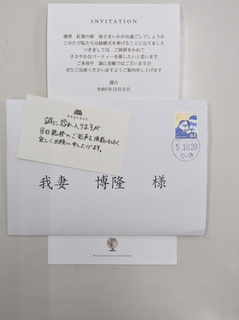 INVITATION
謹啓 紅葉の候 皆さまいかがお過ごしでしょうか
このたび私たちは結婚式を挙げることになりました
つきましては ご挨拶をかねて
ささやかなパーティーを催したいと思います
ご多用中 誠に恐縮ではございますが
ぜひご出席くださいますようご案内申し上げます
謹白
令和5年10月吉日
REQUEST
誠に恐れ入りますが
当日乾杯のご発声を頂戴いたしたく
宜しくお願い申し上げます。
我妻 博隆 様
84
5.10.20